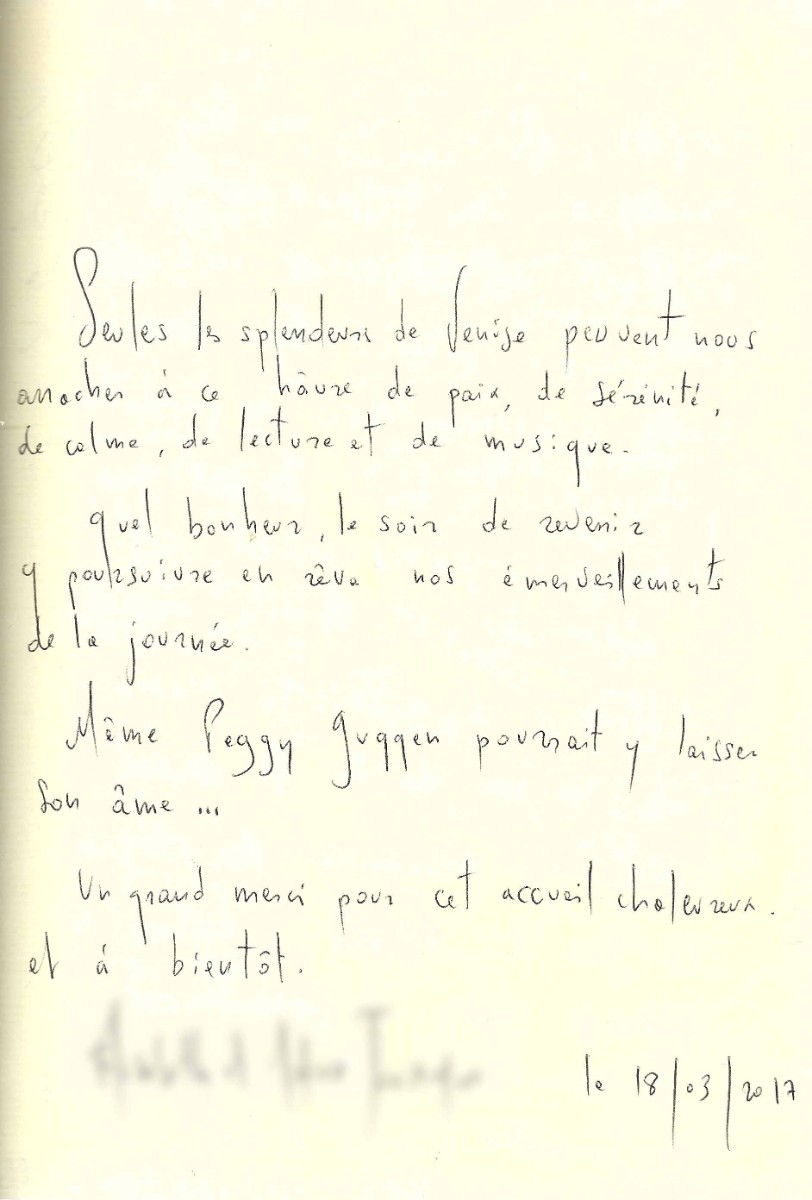 Seules les splendeurs de Venise peuvent nous
arracher à ce hâvre de paix, de sérénité,
de calme, de lecture et de musique.
quel bonheur, le soir de revenir
y poursuivre en rêve nos émerveillements
de la journée.
Même Peggy Guggen pourrait y laisser
son âme ...
Un grand merci pour cet accueil chaleureux.
et à bientôt.
le 18/03/2017